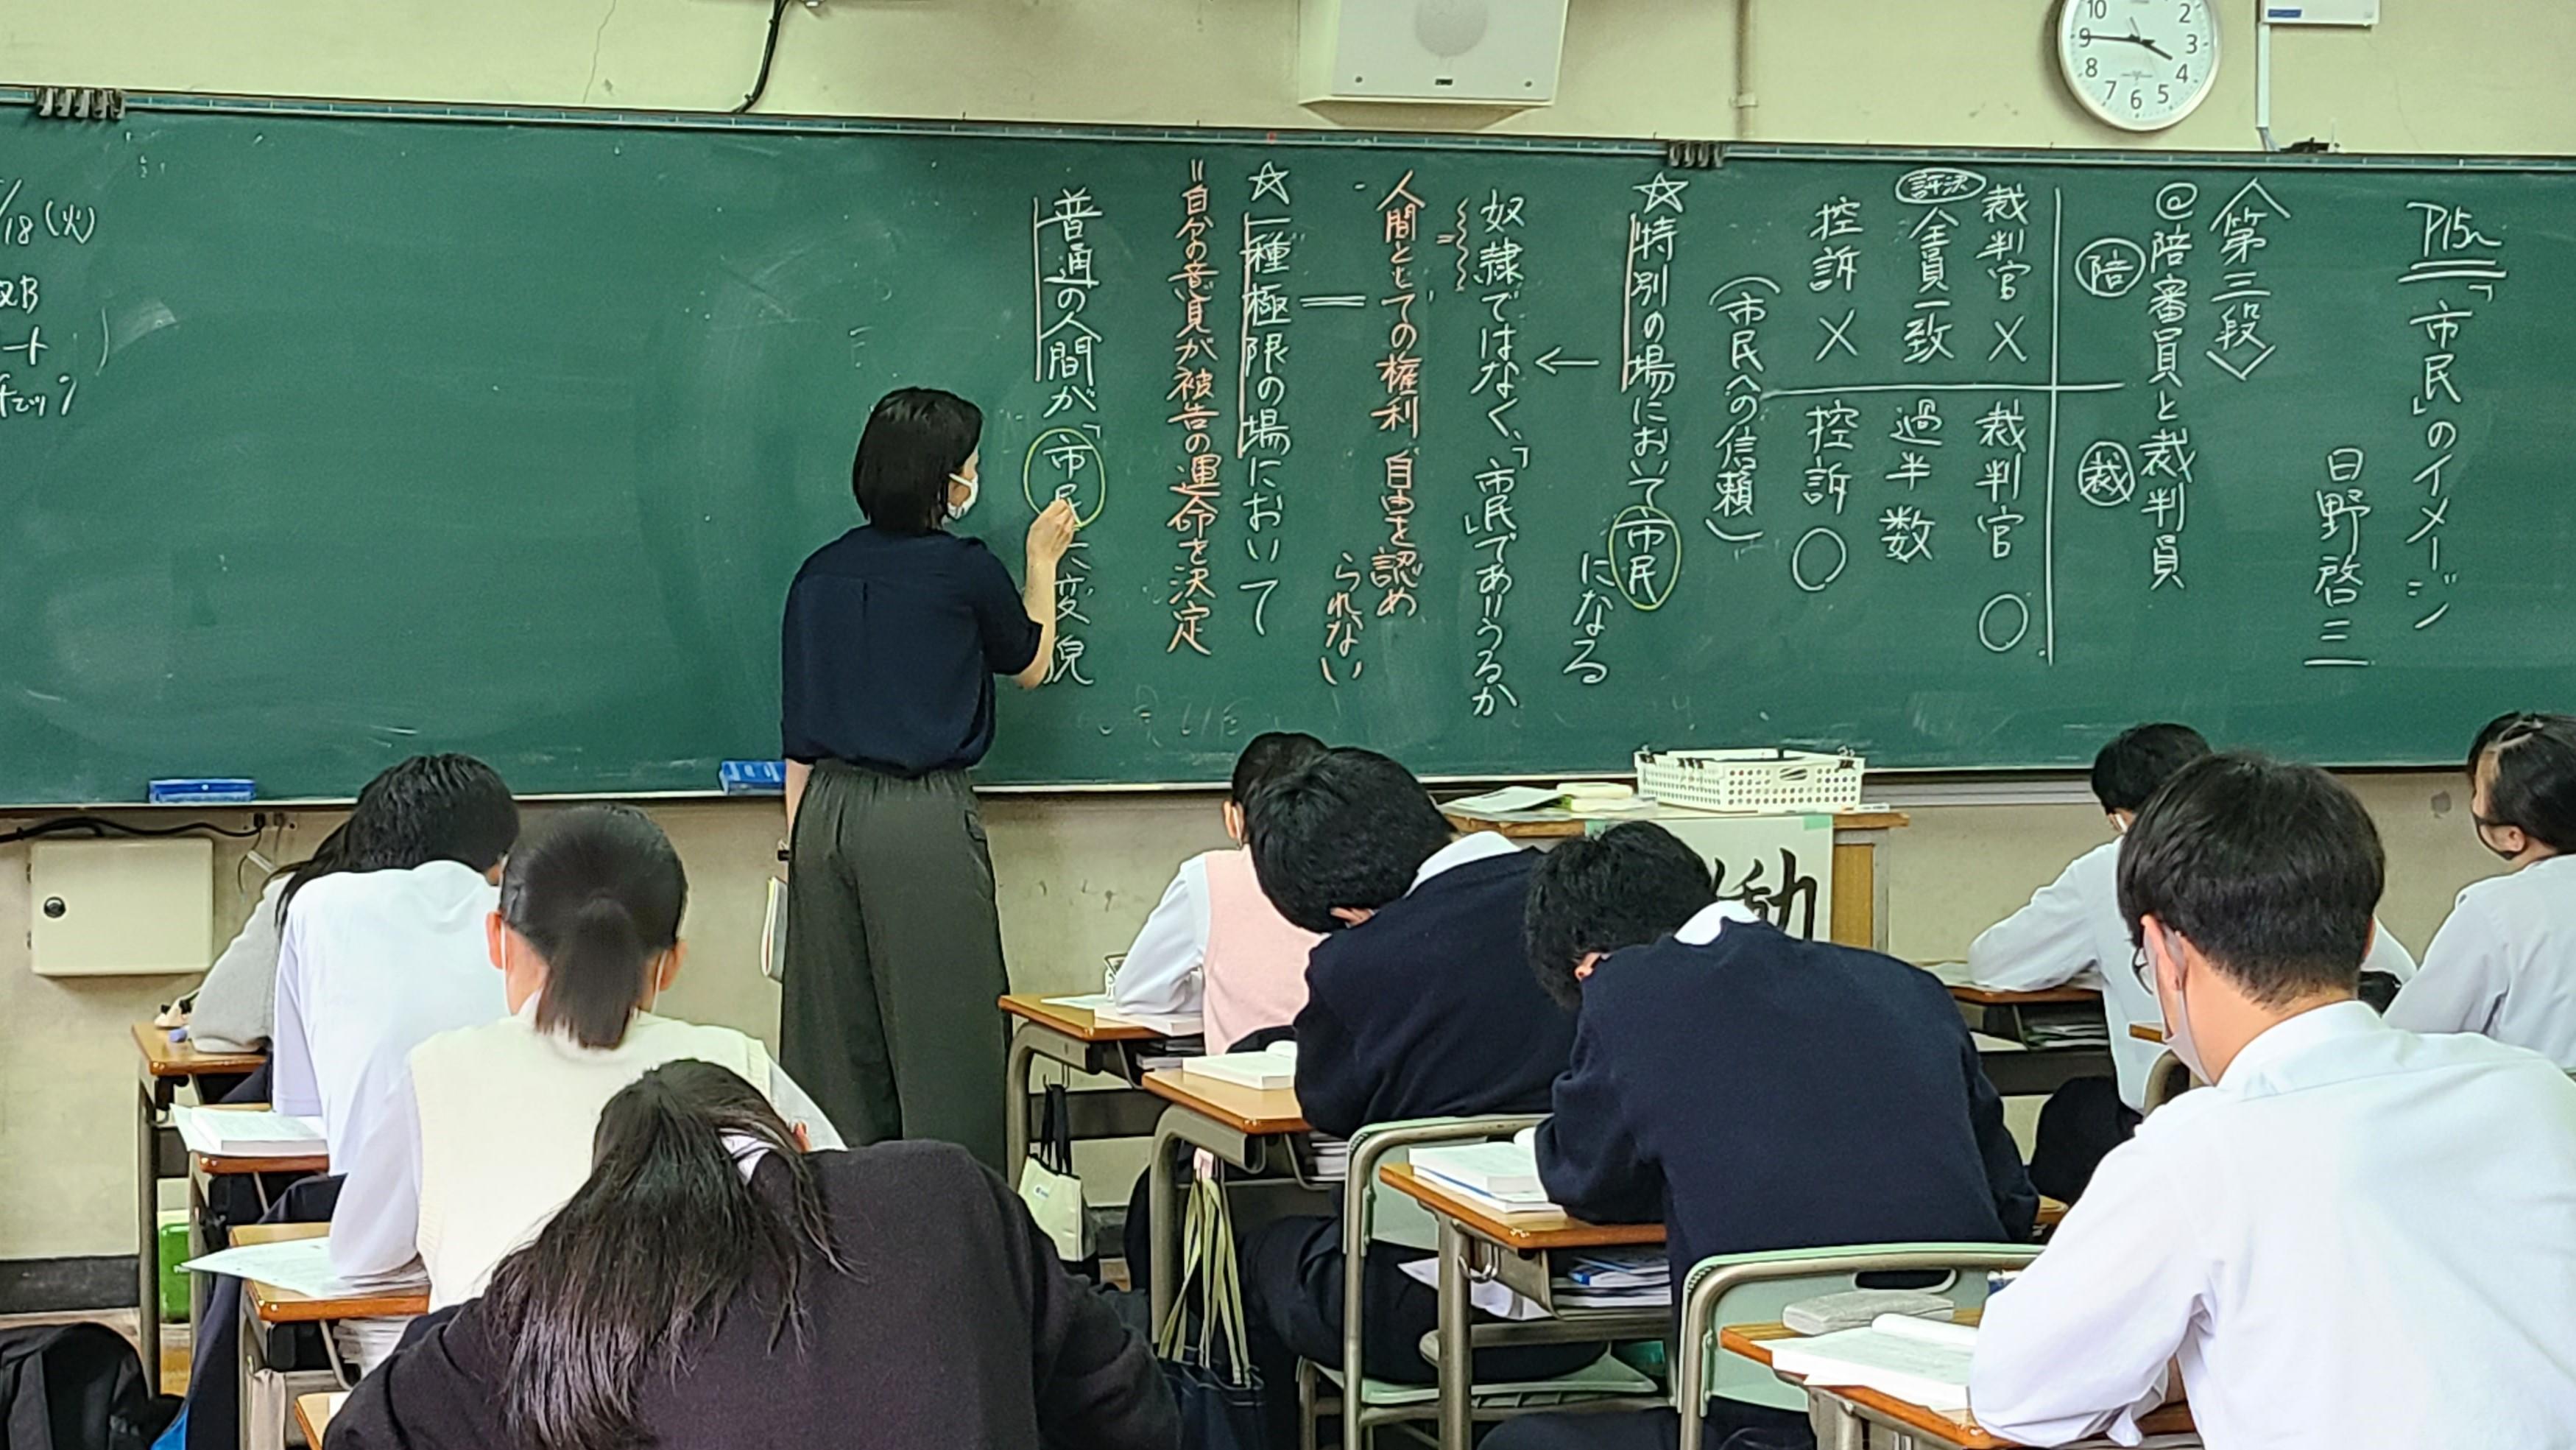 P15〜「市民」のイメージ
日野啓三
〈第三段〉
@陪審員と裁判員
陪 裁
裁判官 × 裁判官 ○
評決 全員一致 過半数
控訴 × 控訴 ○
(市民への信頼)
☆特別の場において市民
になる
←
奴隷ではなく、「市民」でありうるか
=人間としての権利、自由を認め
られない
☆一種極限の場において
=自分の意見が被告の運命を決定
普通の人間が「市民
変貌
18(火)
チェック
10 2 9 3 8 4 7 6 5
動